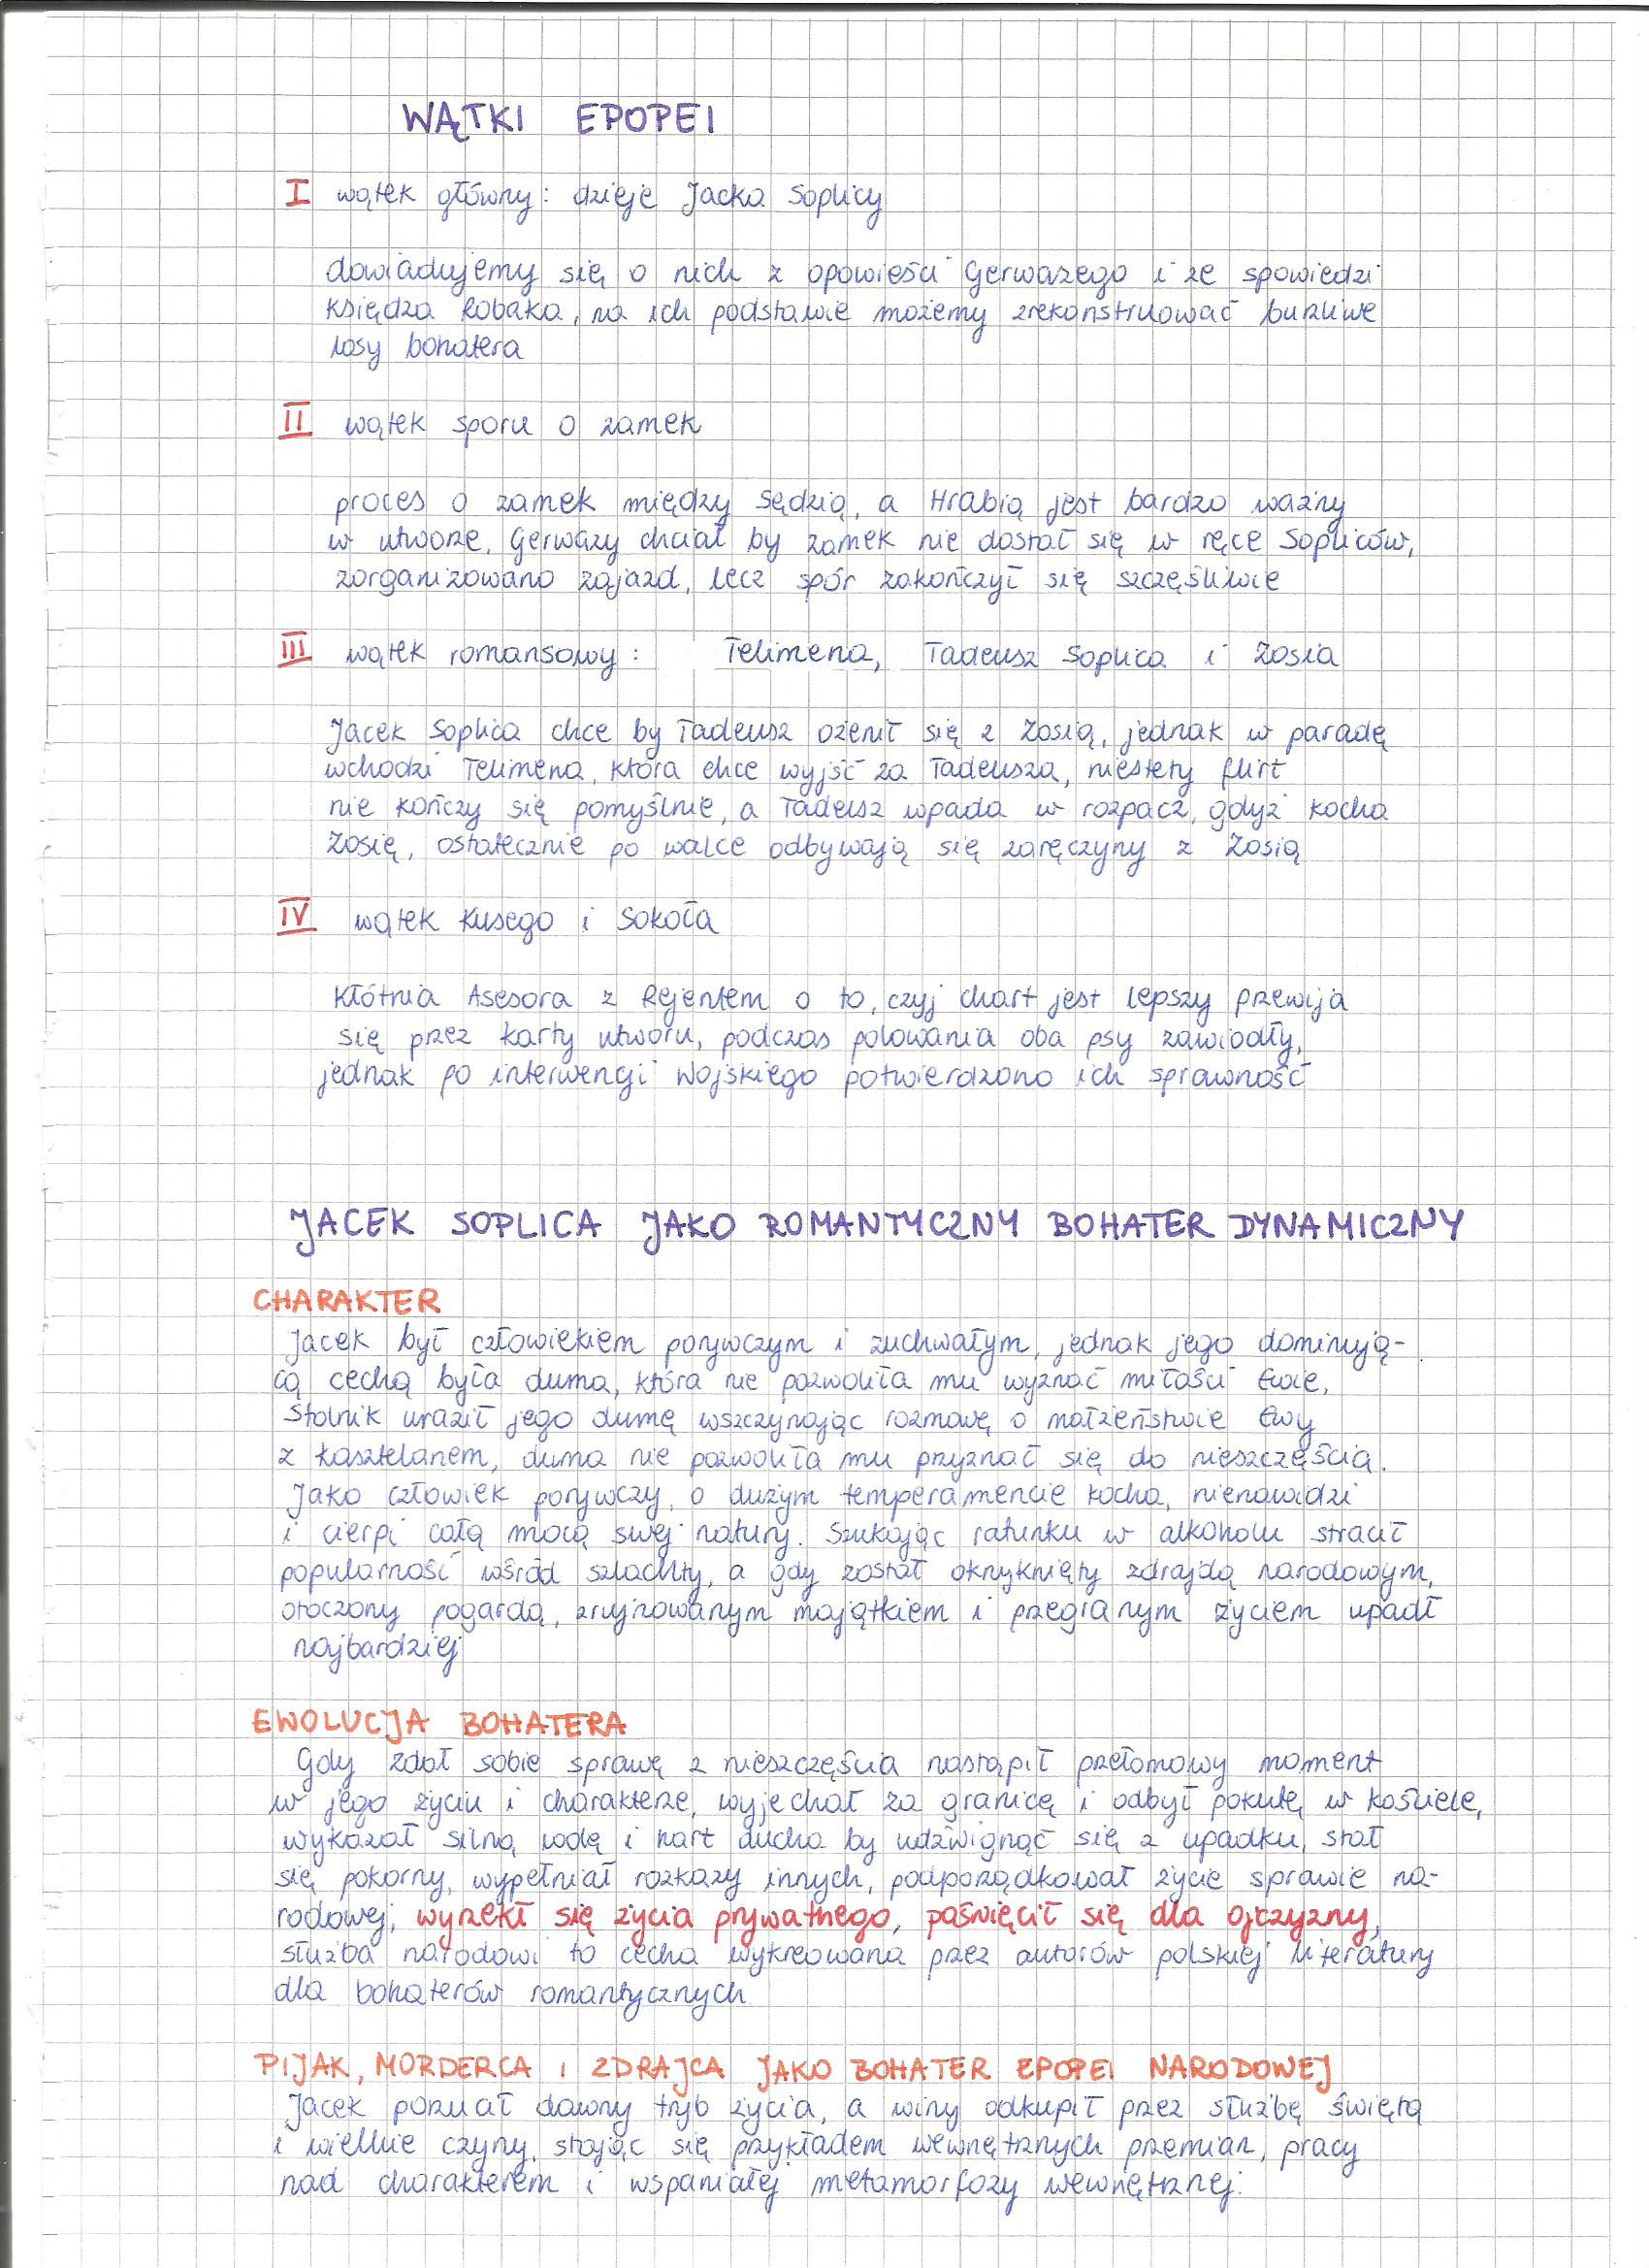 WĄTKI EPOPEI
I wątek główny: dzieje Jacka Soplicy
dowiadujemy się o nich z opowieści Gerwazego i ze spowiedzi
księdza Robaka, na ich podstawie możemy zrekonstruować burzliwe
losy bohatera
II wątek sporu o zamek
proces o zamek między Sędzią, a Hrabią jest bardzo ważny
w utworze, Gerwazy chciał by zamek nie dostał się w ręce Sopliców,
zorganizowano zajazd, lecz spór zakończył się szczęśliwie
III wątek romansowy: Telimena, Tadeusz Soplica i Zosia
Jacek Soplica chce by Tadeusz ożenił się z Zosią, jednak w paradę
wchodzi Telimena, która chce wyjść za Tadeusza, niestety flirt
nie kończy się pomyślnie, a Tadeusz wpada w rozpacz, gdyż kocha
Zosię, ostatecznie po walce odbywają się zaręczyny z Zosią
IV wątek Kusego i Sokoła
Kłótnia Asesora z Rejentem o to, czyj chart jest lepszy przewija
się przez karty utworu, podczas polowania oba psy zawiodły,
jednak po interwencji Wojskiego potwierdzono ich sprawność
JACEK SOPLICA JAKO ROMANTYCZNY BOHATER DYNAMICZNY
CHARAKTER
Jacek był człowiekiem porywczym i zuchwałym, jednak jego dominują-
cą cechą była duma, która nie pozwoliła mu wyznać miłości Ewie,
Stolnik uraził jego dumę wszczynając rozmowę o małżeństwie Ewy
z Kasztelanem, duma nie pozwoliła mu przyznać się do nieszczęścia.
Jako człowiek porywczy, o dużym temperamencie kocha, nienawidzi
i cierpi całą mocą swej natury. Szukając ratunku w alkoholu stracił
popularność wśród szlachty, a gdy został okrzyknięty zdrajdą narodowym,
otoczony pogardą, zrujnowanym majątkiem i przegranym życiem upadł
najbardziej
EWOLUCJA BOHATERA
Gdy zdał sobie sprawę z nieszczęścia nastąpił przełomowy moment
w jego życiu i charakterze, wyjechał za granicę i odbył pokutę w kościele,
wykazał silną wolę i hart ducha by udźwignąć się z upadku, stał
się pokorny, wypełniał rozkazy innych, podporządkował życie sprawie na-
rodowej, wyrzekł się życia prywatnego, poświęcił się dla ojczyzny,
służba narodowi to cecha wykreowana przez autorów polskiej literatury
dla bohaterów romantycznych
PIJAK, MORDERCA I ZDRAJCA JAKO BOHATER EPOPEI NARODOWEJ
Jacek porzucał dawny tryb życia, a winy odkupił przez służbę świętą
i wielkie czyny, stając się przykładem wewnętrznych przemian, pracy
nad charakterem i wspaniałej metamorfozy wewnętrznej.